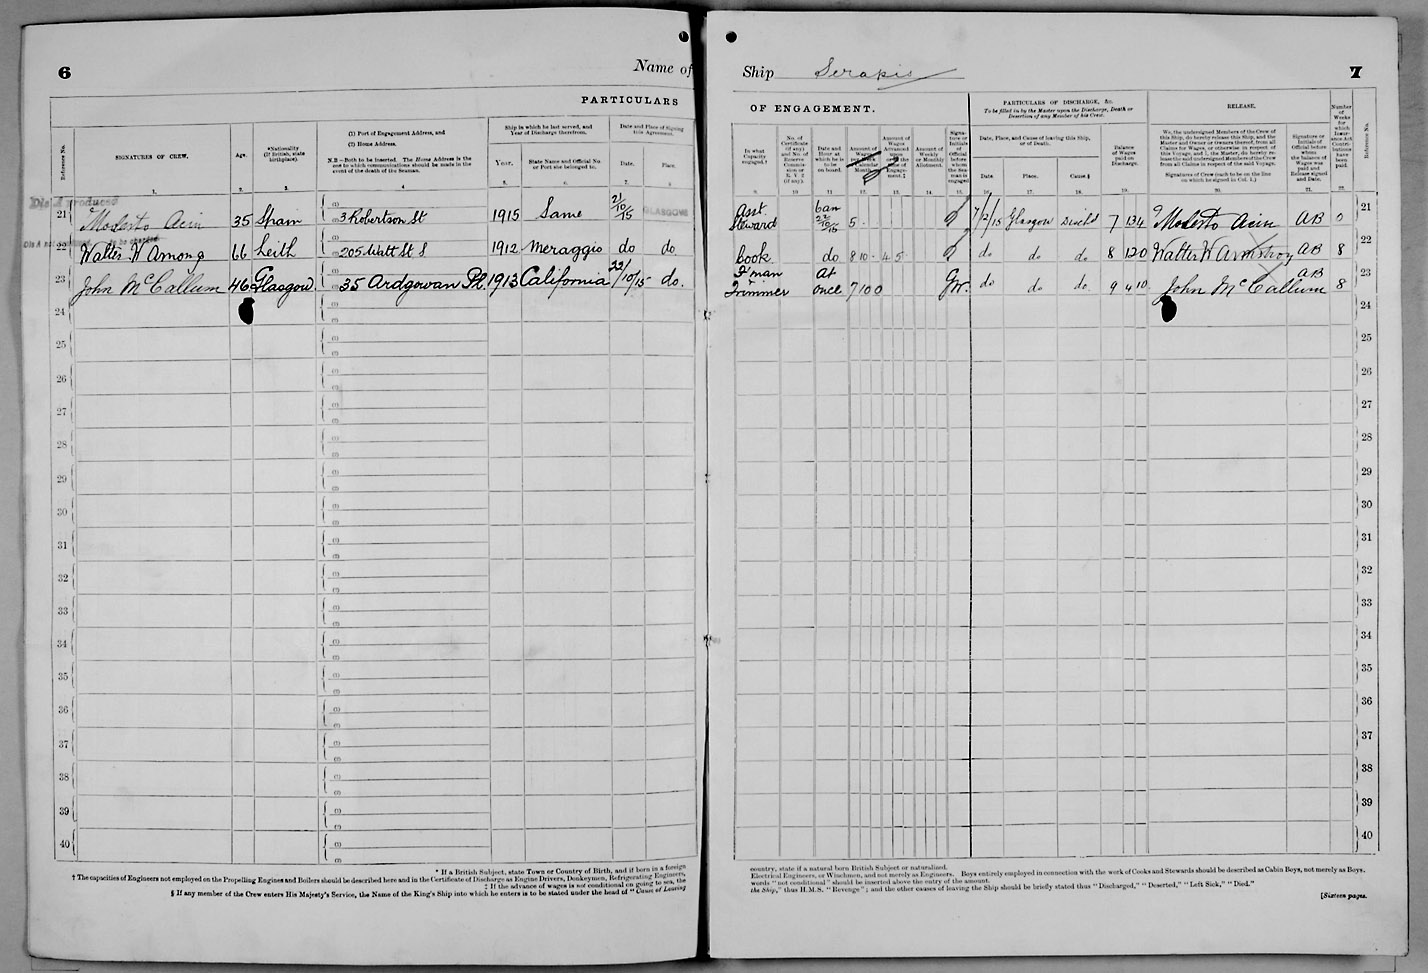 6
Name of
Ship Serapis
7
PARTICULARS
OF ENGAGEMENT.
Reference No.
SIGNATURES OF CREW.
Age.
*Nationality
(If British, state
birthplace).
(1) Port of Engagement Address, and
(2) Home Address.
N.B.—Both to be inserted. The Home Address is the
one to which communications should be made in the
event of the death of the Seaman.
Ship in which he last served, and
Year of Discharge therefrom.
Year.
State Name and Official No.
or Port she belonged to.
Date and Place of Signing
this Agreement.
Date.
Place.
In what
Capacity
engaged.†
No. of
Certificate
(if any)
and No. of
Reserve
Commis-
sion or
R. V 2
(if any).
Date and
Hour at
which he is
to be
on board.
Amount of
Wages
Calendar
Month
Amount of
Wages
Advanced
Engage-
ment.‡
Amount of
Weekly
or Monthly
Allotment.
Signa-
ture or
Initials
of
Official
before
whom
the Sea-
man is
engaged
PARTICULARS OF DISCHARGE, &c.
To be filled in by the Master upon the Discharge, Death or
Desertion of any Member of his Crew.
Date, Place, and Cause of leaving this Ship,
or of Death.
Date.
Place.
Cause.§
Balance
of Wages
paid on
Discharge.
RELEASE.
We, the undersigned Members of the Crew of
this Ship, do hereby release this Ship, and the
Master and Owner or Owners thereof, from all
Claims for Wages, or otherwise in respect of
this Voyage; and I, the Master, do hereby re-
lease the said undersigned Members of the Crew
from all Claims in respect of the said Voyage.
Signatures of Crew (each to be on the line
on which he signed in Col. 1.)
Signature or
Initials of
Official before
whom
the balance of
Wages was
paid and
Release signed
and Date.
Number
of
Weeks
for
which
Insur-
ance Act
Contri-
butions
have
been
paid.
Reference No.
1. 2. 3. 4 5. 6. 7. 8
9. 10 11 12. 13. 14. 15. 16. 17. 18. 19. 20. 21. 22.
Dis A produced
21 Modesto Acin 35 Spain 3 Robertson St 1915 Same 2/10/15 GLASGOW
Asst Steward 6am 22/10/15 5 - 7/2/15 Glasgow Disch'd 7 13 4 Modesto Acin AB 0 21
22 Walter W Armong 66 Leith 205 Watt St S 1912 Meraggio do do
Cook do 8 10 - 4 5 - do do do 8 12 0 Walter W Armstrong AB 8 22
23 John McCallum 46 Glasgow 35 Ardgowan Pl. 1913 California 22/10/15 do.
F'man & Trimmer at once 7 10 0 GW. do do do 9 4 10 John McCallum AB 8 23
24 24
25 25
26 26
27 27
28 28
29 29
30 30
31 31
32 32
33 33
34 34
35 35
36 36
37 37
38 38
39 39
40 40
* If a British Subject, state Town or Country of Birth, and if born in a foreign
country, state if a natural born British Subject or naturalized.
† The capacities of Engineers not employed on the Propelling Engines and Boilers should be described here and in the Certificate of Discharge as Engine Drivers, Donkeymen, Refrigerating Engineers,
Electrical Engineers, or Winchmen, and not merely as Engineers. Boys entirely employed in connection with the work of Cooks and Stewards should be described as Cabin Boys, not merely as Boys.
‡ If the advance of wages is not conditional on going to sea, the
words "not conditional" should be inserted above the entry of the amount.
§ If any member of the Crew enters His Majesty's Service, the Name of the King's Ship into which he enters is to be stated under the head of "Cause of Leaving
the Ship," thus H.M.S. "Revenge"; and the other causes of leaving the Ship should be briefly stated thus "Discharged," "Deserted," "Left Sick," "Died."
[Sixteen pages.